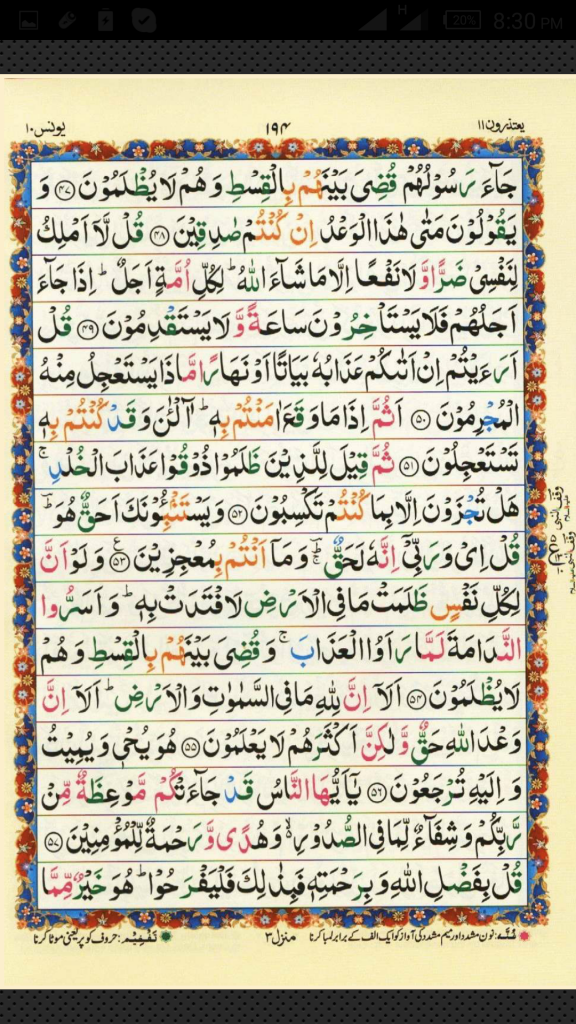 H 20% 8:30 PM
یعتذرون ۱۱ ۱۹۴ یونس ۱۰
جَآءَ رَسُوْلُهُمْ قُضِیَ بَیْنَهُمْ بِالْقِسْطِ وَ هُمْ لَا یُظْلَمُوْنَ ﴿۴۷﴾ وَ
یَقُوْلُوْنَ مَتٰی هٰذَا الْوَعْدُ اِنْ كُنْتُمْ صٰدِقِیْنَ ﴿۴۸﴾ قُلْ لَّاۤ اَمْلِكُ
لِنَفْسِیْ ضَرًّا وَّ لَا نَفْعًا اِلَّا مَا شَآءَ اللّٰهُ ؕ لِكُلِّ اُمَّةٍ اَجَلٌ ؕ اِذَا جَآءَ
اَجَلُهُمْ فَلَا یَسْتَاْخِرُوْنَ سَاعَةً وَّ لَا یَسْتَقْدِمُوْنَ ﴿۴۹﴾ قُلْ
اَرَءَیْتُمْ اِنْ اَتٰىكُمْ عَذَابُهٗ بَیَاتًا اَوْ نَهَارًا مَّاذَا یَسْتَعْجِلُ مِنْهُ
الْمُجْرِمُوْنَ ﴿۵۰﴾ اَثُمَّ اِذَا مَا وَقَعَ اٰمَنْتُمْ بِهٖ ؕ آٰلْـٰٔنَ وَ قَدْ كُنْتُمْ بِهٖ
تَسْتَعْجِلُوْنَ ﴿۵۱﴾ ثُمَّ قِیْلَ لِلَّذِیْنَ ظَلَمُوْا ذُوْقُوْا عَذَابَ الْخُلْدِ ۚ
هَلْ تُجْزَوْنَ اِلَّا بِمَا كُنْتُمْ تَكْسِبُوْنَ ﴿۵۲﴾ وَ یَسْتَنْۢبِـُٔوْنَكَ اَحَقٌّ هُوَ ؕ
قُلْ اِیْ وَ رَبِّیْۤ اِنَّهٗ لَحَقٌّ ؕۚ وَ مَاۤ اَنْتُمْ بِمُعْجِزِیْنَ ﴿۵۳﴾ وَ لَوْ اَنَّ
لِكُلِّ نَفْسٍ ظَلَمَتْ مَا فِی الْاَرْضِ لَافْتَدَتْ بِهٖ ؕ وَ اَسَرُّوا
النَّدَامَةَ لَمَّا رَاَوُا الْعَذَابَ ۚ وَ قُضِیَ بَیْنَهُمْ بِالْقِسْطِ وَ هُمْ
لَا یُظْلَمُوْنَ ﴿۵۴﴾ اَلَاۤ اِنَّ لِلّٰهِ مَا فِی السَّمٰوٰتِ وَ الْاَرْضِ ؕ اَلَاۤ اِنَّ
وَعْدَ اللّٰهِ حَقٌّ وَّ لٰكِنَّ اَكْثَرَهُمْ لَا یَعْلَمُوْنَ ﴿۵۵﴾ هُوَ یُحْیٖ وَ یُمِیْتُ
وَ اِلَیْهِ تُرْجَعُوْنَ ﴿۵۶﴾ یٰۤاَیُّهَا النَّاسُ قَدْ جَآءَتْكُمْ مَّوْعِظَةٌ مِّنْ
رَّبِّكُمْ وَ شِفَآءٌ لِّمَا فِی الصُّدُوْرِ ۙ۬ وَ هُدًی وَّ رَحْمَةٌ لِّلْمُؤْمِنِیْنَ ﴿۵۷﴾
قُلْ بِفَضْلِ اللّٰهِ وَ بِرَحْمَتِهٖ فَبِذٰلِكَ فَلْیَفْرَحُوْا ؕ هُوَ خَیْرٌ مِّمَّا
غُنَّہ: نون مشدد اور میم مشدد کی آواز کو ایک الف کے برابر لمبا کرنا منزل ۳ تَفْخِیْم: حروف کو پُر یعنی موٹا کرنا